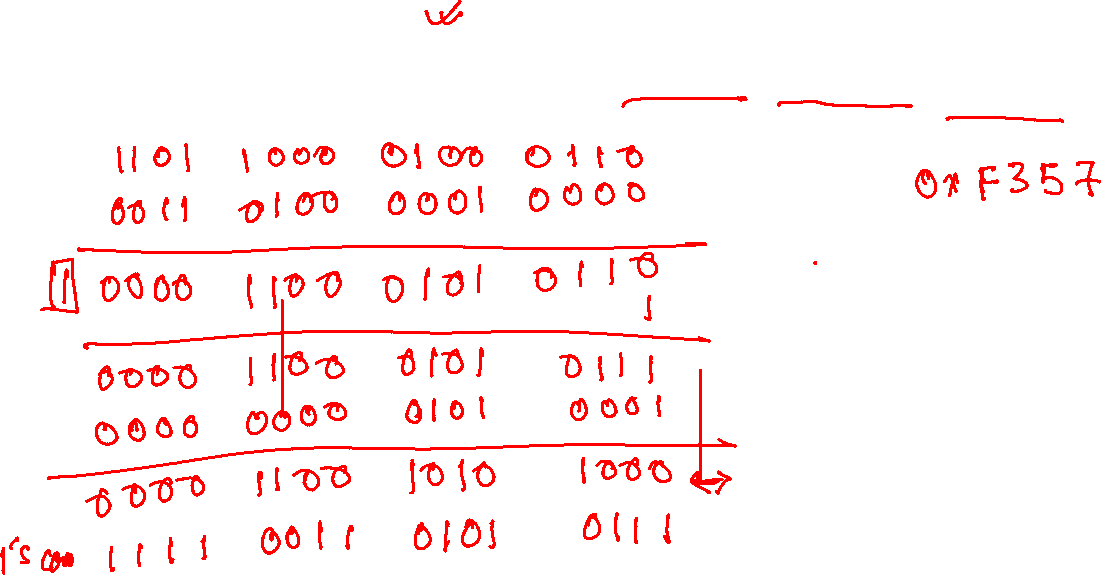 1101 1000 0100 0110
0xF357
0011 0100 0001 0000
1 0000 1100 0101 0110
1
0000 1100 0101 0111
0000 0000 0101 0001
0000 1100 1010 1000
1's com 1111 0011 0101 0111